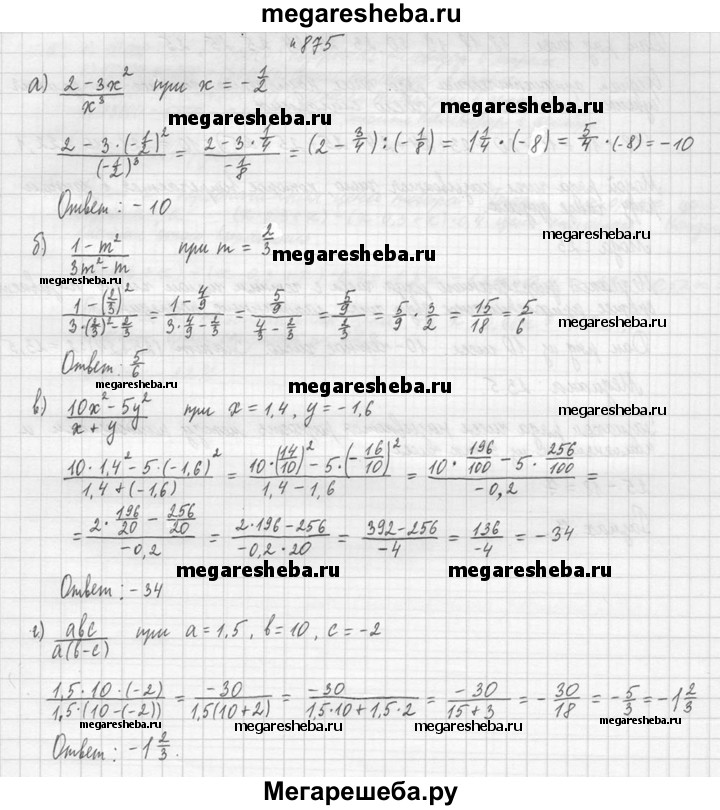 megaresheba.ru
№ 875
а) (2 − 3x²)/x³ при x = −1/2
megaresheba.ru megaresheba.ru
(2 − 3·(−1/2)²)/(−1/2)³ = (2 − 3·1/4)/(−1/8) = (2 − 3/4) : (−1/8) = 1 1/4 · (−8) = 5/4 · (−8) = −10
Ответ: −10
megaresheba.ru
б) (1 − m²)/(3m² − m) при m = 2/3
megaresheba.ru megaresheba.ru
(1 − (2/3)²)/(3·(2/3)² − 2/3) = (1 − 4/9)/(3·4/9 − 2/3) = (5/9)/(4/3 − 2/3) = (5/9)/(2/3) = 5/9 · 3/2 = 15/18 = 5/6
Ответ: 5/6
megaresheba.ru megaresheba.ru
в) (10x² − 5y²)/(x + y) при x = 1,4, y = −1,6
megaresheba.ru
(10·1,4² − 5·(−1,6)²)/(1,4 + (−1,6)) = (10·(14/10)² − 5·(−16/10)²)/(1,4 − 1,6) = (10·196/100 − 5·256/100)/(−0,2) =
= (2·196/20 − 256/20)/(−0,2) = (2·196 − 256)/(−0,2·20) = (392 − 256)/(−4) = 136/(−4) = −34
Ответ: −34
megaresheba.ru megaresheba.ru
г) abc/(a(b−c)) при a = 1,5, b = 10, c = −2
(1,5·10·(−2))/(1,5·(10−(−2))) = −30/(1,5(10+2)) = −30/(1,5·10 + 1,5·2) = −30/(15 + 3) = −30/18 = −5/3 = −1 2/3
megaresheba.ru megaresheba.ru megaresheba.ru megaresheba.ru
Ответ: −1 2/3.
Мегарешеба.ру